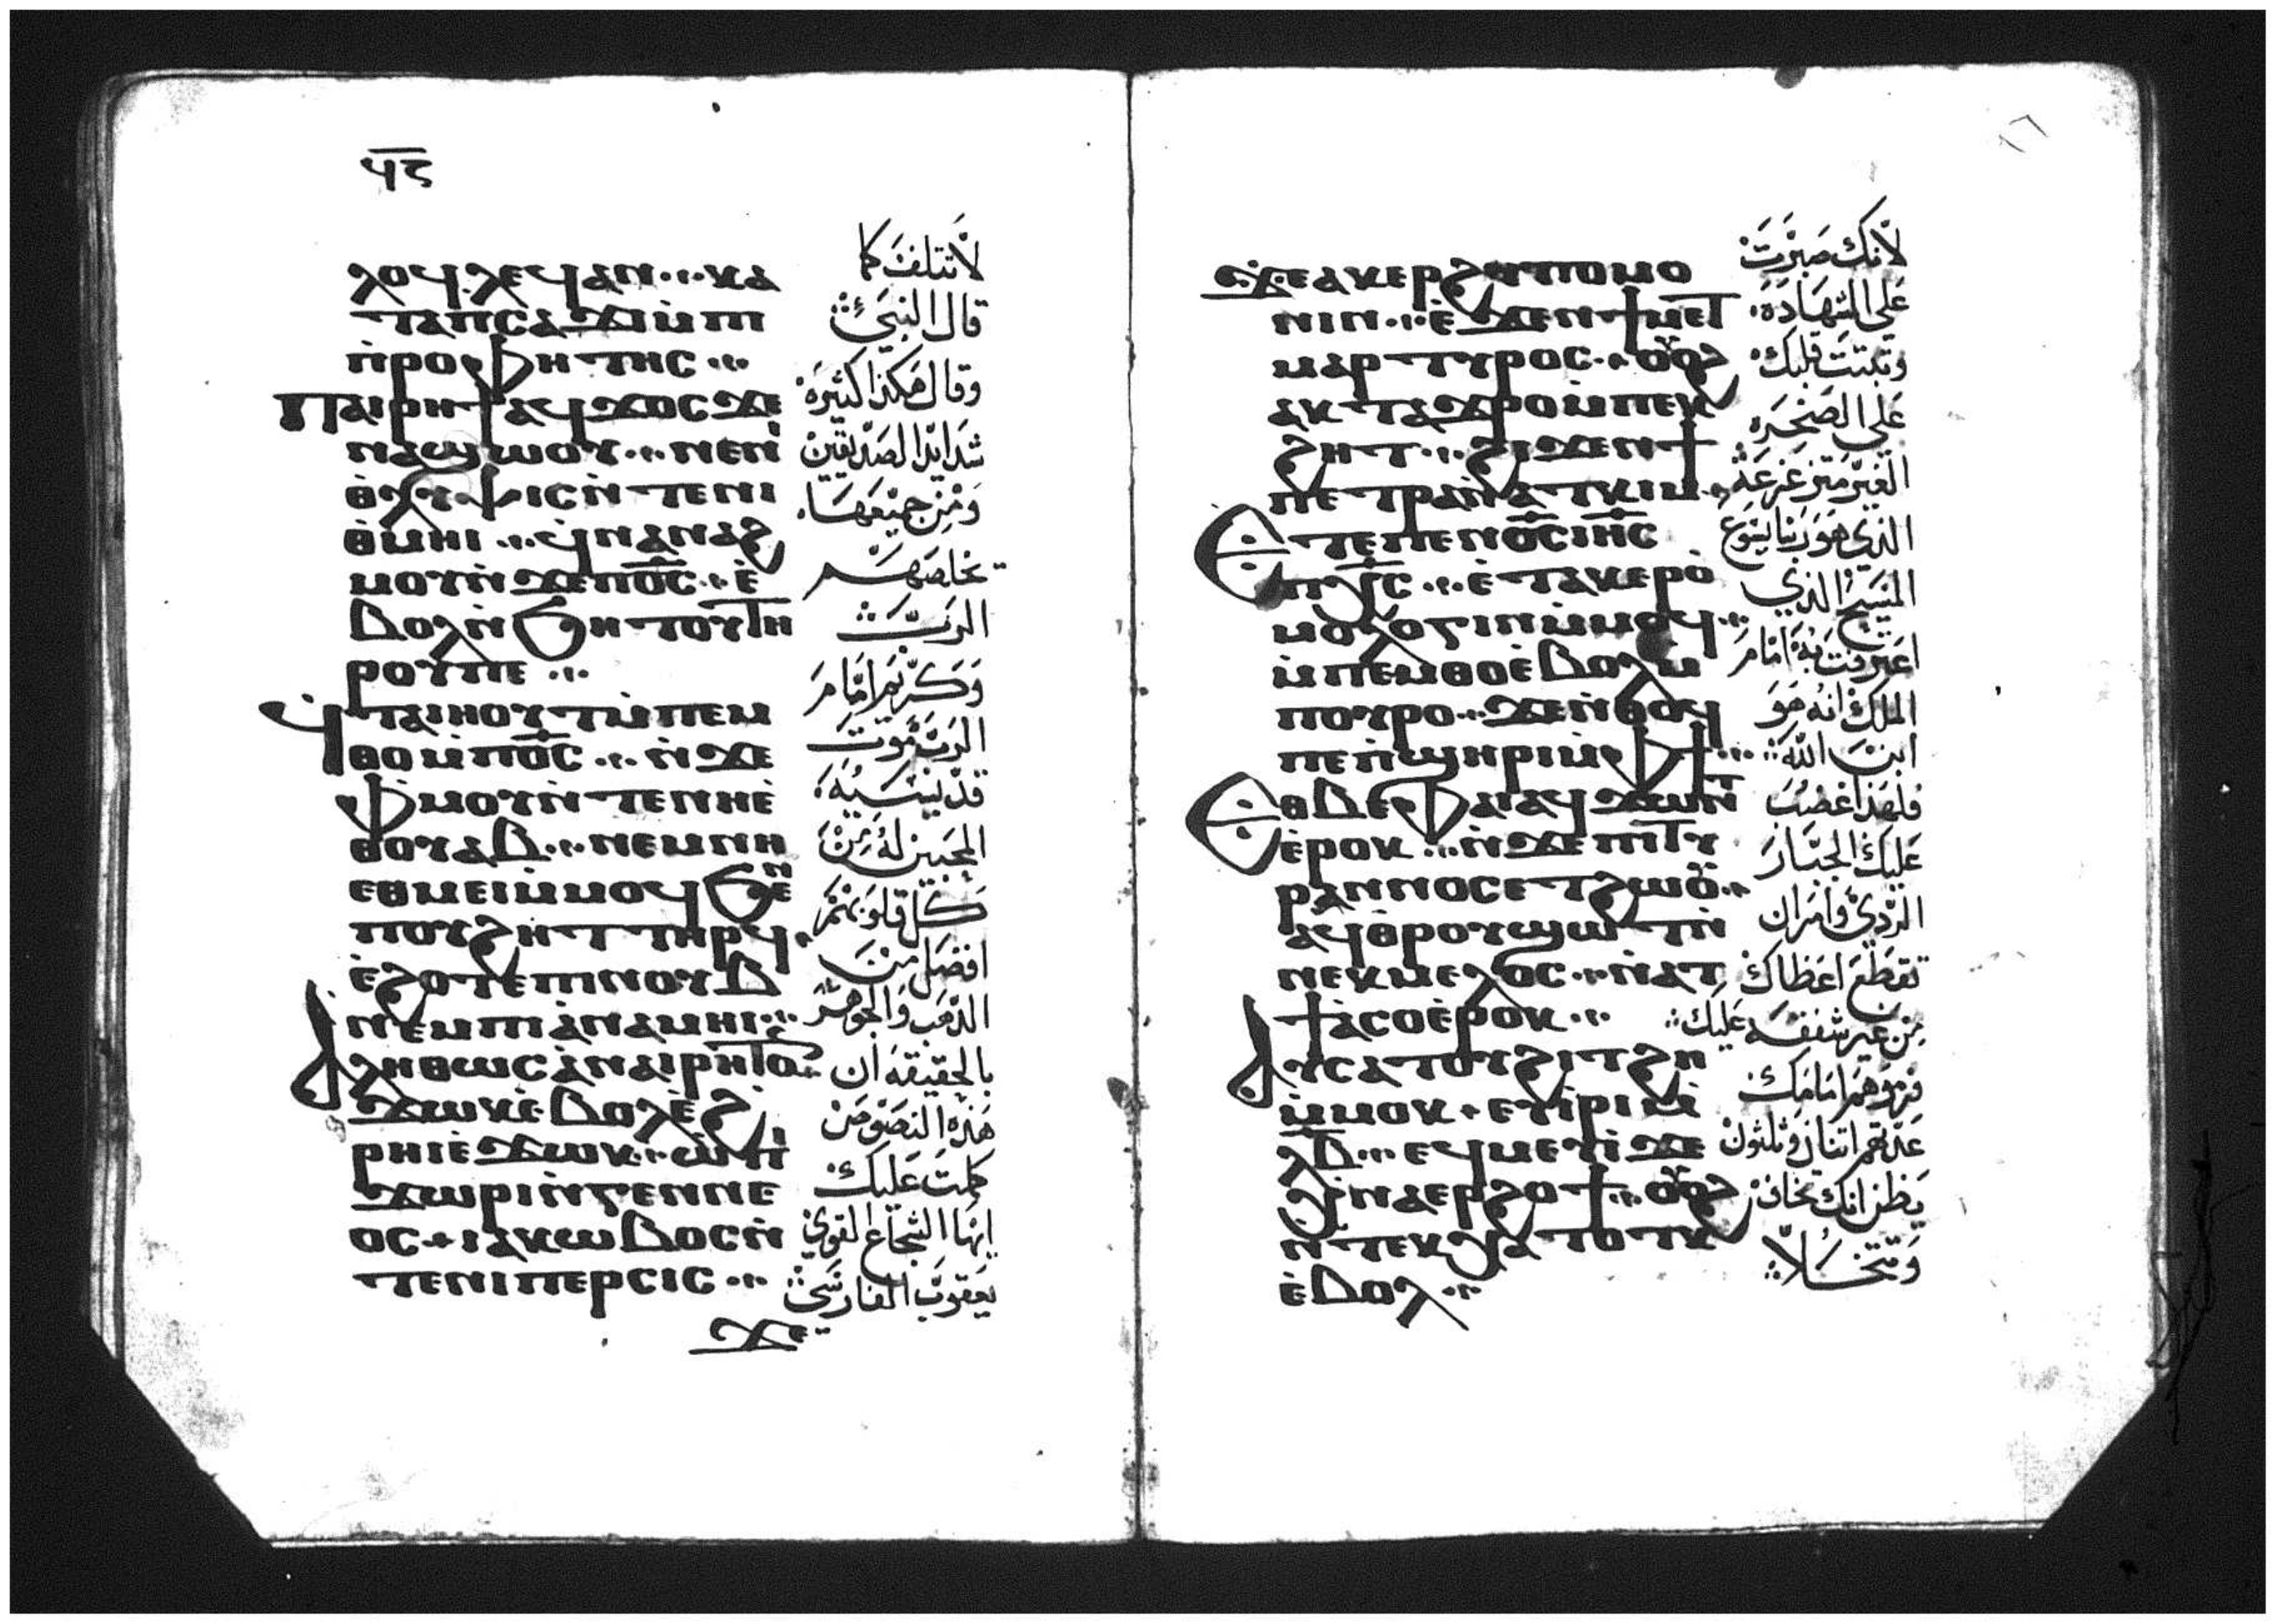 ϥ̅ϛ̅
ⲗⲟⲩϥ ⲗⲉϥⲁⲛ ⲕⲁ
ⲧⲁⲡⲥⲁϫⲓⲙ̀ⲡⲓ
ⲡ̀ⲣⲟⲫⲏⲧⲏⲥ
Ⲡⲁⲓⲣⲏϯ ⲁϥϫⲟⲥϫⲉ
ⲛⲁϣⲱⲟⲩ ⲛⲉⲛⲓ̀
ⲑ̀ⲗⲩⲯⲓⲥⲛ̀ⲧⲉⲛⲓ
ⲑ̀ⲙⲏⲓ ϥ̀ⲛⲁⲛⲁϩ
ⲙⲟⲩⲛ̀ϫⲉⲡⲟ̅ⲥ̅ ⲉ̀
ⲃⲟⲗⲛ̀ϧⲏⲧⲟⲩⲧⲏ
ⲣⲟⲩⲡⲉ
Ϥⲧⲁⲓⲏⲟⲩⲧⲙ̀ⲡⲉⲙ
ⲑⲟⲙ̀ⲡⲟ̅ⲥ̅ ⲛ̀ϫⲉ
ⲫ̀ⲙⲟⲩⲛ̀ⲧⲉⲛⲏⲉ̀
ⲑⲟⲩⲁⲃ ⲛⲉⲙⲛⲏ
ⲉⲑⲙⲉⲓⲙ̀ⲙⲟϥ ϧⲉⲛ
ⲡⲟⲩϩⲏⲧ ⲧⲏⲣϥ
ⲉ̀ϩⲟⲧⲉⲡⲓⲛⲟⲩⲃ
ⲛⲉⲙⲡⲓⲁ̀ⲛⲁⲙⲏⲓ
Ⲁⲗⲏⲑⲱⲥ ⲁ̀ⲛⲁⲓⲣⲏϯ
ϫⲱⲕⲉ̀ⲃⲟⲗⲉ̀ϩ
ⲣⲏⲓⲉ̀ϫⲱⲕ ⲱ̀ⲡⲓ
ϫⲱⲣⲓⲛ̀ⲅⲉⲛⲛⲉ
ⲟⲥ ⲓⲁⲕⲱⲃⲟⲥⲛ̀
ⲧⲉⲛⲓⲡⲉⲣⲥⲓⲥ
ϫⲉ
لاتتلف كما
قال النبي
وقال هكذا كثيرة
شدايد الصديقين
ومن جميعها
يخلصهم
الرب
وكريم امام
الرب موت
قديسيه
المحبين له من
كل قلوبهم
افضل من
الذهب والجوهر
بالحقيقة ان
هذه النصوص
كملت عليك
ايها الشجاع القوي
يعقوب الفارسي
ϫⲉⲁⲕⲉⲣϩⲩⲡⲟⲙⲟ
ⲛⲓⲛ ⲉ̀ϫⲉⲛϯⲙⲉⲧ
ⲙⲁⲣⲧⲩⲣⲟⲥ ⲟⲩⲟϩ
ⲁⲕⲧⲁϫⲣⲟⲙ̀ⲡⲉⲕ
ϩⲏⲧ ϩⲓϫⲉⲛϯ
ⲡⲉⲧⲣⲁⲛ̀ⲁⲧⲕⲓⲙ
Ⲉⲧⲉⲡⲉⲛⲟ̅ⲥ̅ⲓⲏ̅ⲥ̅
ⲡⲭ̅ⲥ̅ ⲉ̀ⲧⲁⲕⲉⲣⲟ̀
ⲙⲟⲗⲟⲅⲓⲛⲙ̀ⲙⲟϥ
ⲙ̀ⲡⲉⲙⲑⲟⲉ̀ⲃⲟⲗⲙ̀
ⲡⲟⲩⲣⲟ ϫⲉⲛ̀ⲑⲟϥ
ⲡⲉⲡ̀ϣⲏⲣⲓⲙ̀ⲫϯ
Ⲉⲑⲃⲉⲫⲁⲓ ⲁϥϫⲱⲛⲧ
ⲉ̀ⲣⲟⲕ ⲛ̀ϫⲉⲡⲓⲧⲩ
ⲣⲁⲛⲛⲟⲥⲉⲧϩⲱⲟⲩ
ⲁϥⲑ̀ⲣⲟⲩϣⲱⲧⲛ̀
ⲛⲉⲕⲙⲉⲗⲟⲥ ⲛ̀ⲁⲧ
ϯⲁⲥⲟⲉ̀ⲣⲟⲕ
Ⲁⲩⲥⲁⲧⲟⲩϩⲓⲧϩⲏ
ⲙ̀ⲙⲟⲕ ⲉⲩⲓ̀ⲣⲓⲙ̀
ⲗ̅ⲃ̅ ⲉϥⲙⲉⲩⲓϫⲉ
ⲭ̀ⲛⲁⲉⲣϩⲟϯ ⲟⲩⲟϩ
ⲛ̀ⲧⲉⲕⲭⲁⲧⲟⲧⲕ
ⲉ̀ⲃⲟⲗ
لانك صبرت
علي الشهادة
وثبتت قلبك
علي الصخره
الغير متزعزعة
الذي هو ربنا يسوع
المسيح الذي
اعترفت به امام
الملك انه هو
ابن الله
فلهذا غضب
عليك الجبار
الردي وامر ان
تقطع اعضاك
من غير شفقه عليك
فرموهم امامك
عدتهم اتنان وثلثون
يظن انك تخاف
وتتخلا